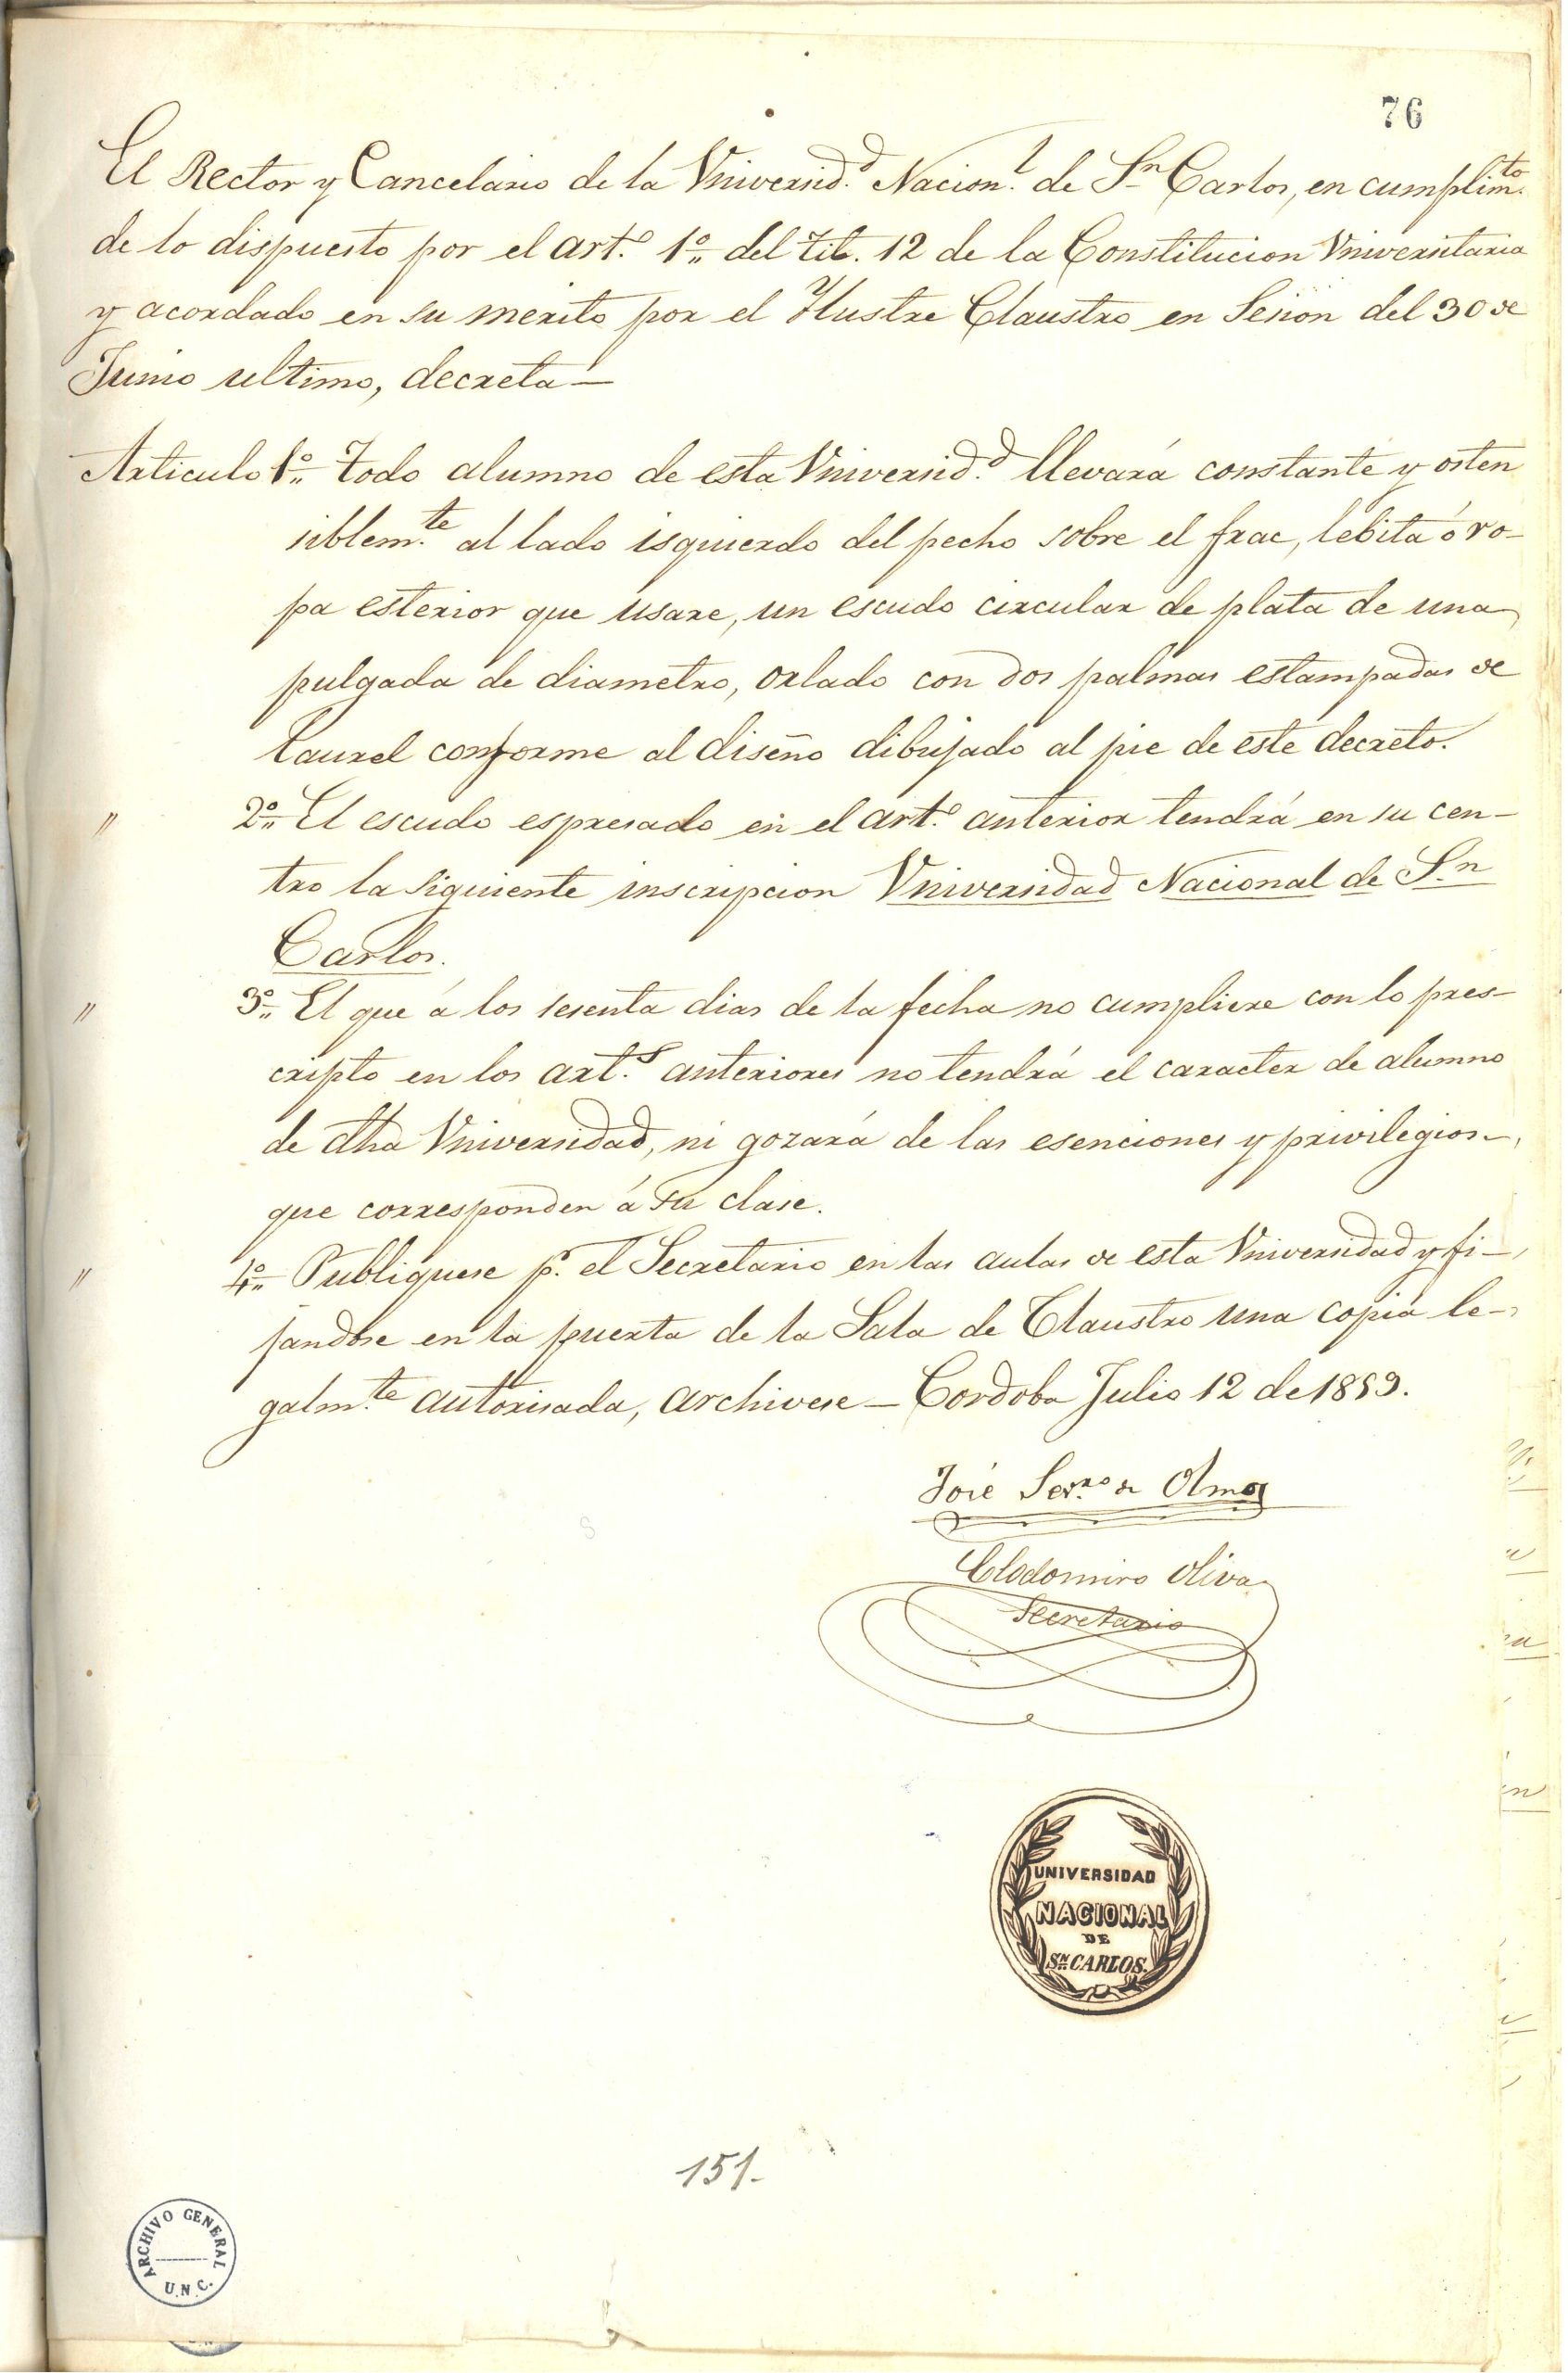 76
El Rector y Cancelario de la Vniversid.d Nacion.l de Sn Carlos, en cumplim.to
de lo dispuesto por el art.o 1o del tit. 12 de la Constitucion Vniversitaria
y acordado en su merito por el Ilustre Claustro en Sesion del 30 de
Junio ultimo, decreta—
Articulo 1o Todo alumno de esta Vniversid.d llevará constante y osten
siblem.te al lado isquierdo del pecho sobre el frac, lebita ó ro-
pa esterior que usare, un escudo circular de plata de una
pulgada de diametro, orlado con dos palmas estampadas de
laurel conforme al diseño dibujado al pie de este decreto.
" 2o El escudo espresado en el art.o anterior tendrá en su cen-
tro la siguiente inscripcion Vniversidad Nacional de S.n
Carlos.
" 3o El que á los sesenta dias de la fecha no cumpliere con lo pres-
cripto en los art.s anteriores no tendrá el caracter de alumno
de dha Vniversidad, ni gozará de las esenciones y privilegios
que corresponden á su clase.
" 4o Publiquese p.r el Secretario en las aulas de esta Vniversidad y fi-
jandose en la puerta de la Sala de Claustro una copia le-
galm.te autorisada, archivese — Cordoba Julio 12 de 1859.
José Sev.no de Olmos
Clodomiro Oliva
Secretario
UNIVERSIDAD
NACIONAL
DE
SN CARLOS.
151-
ARCHIVO GENERAL
U.N.C.